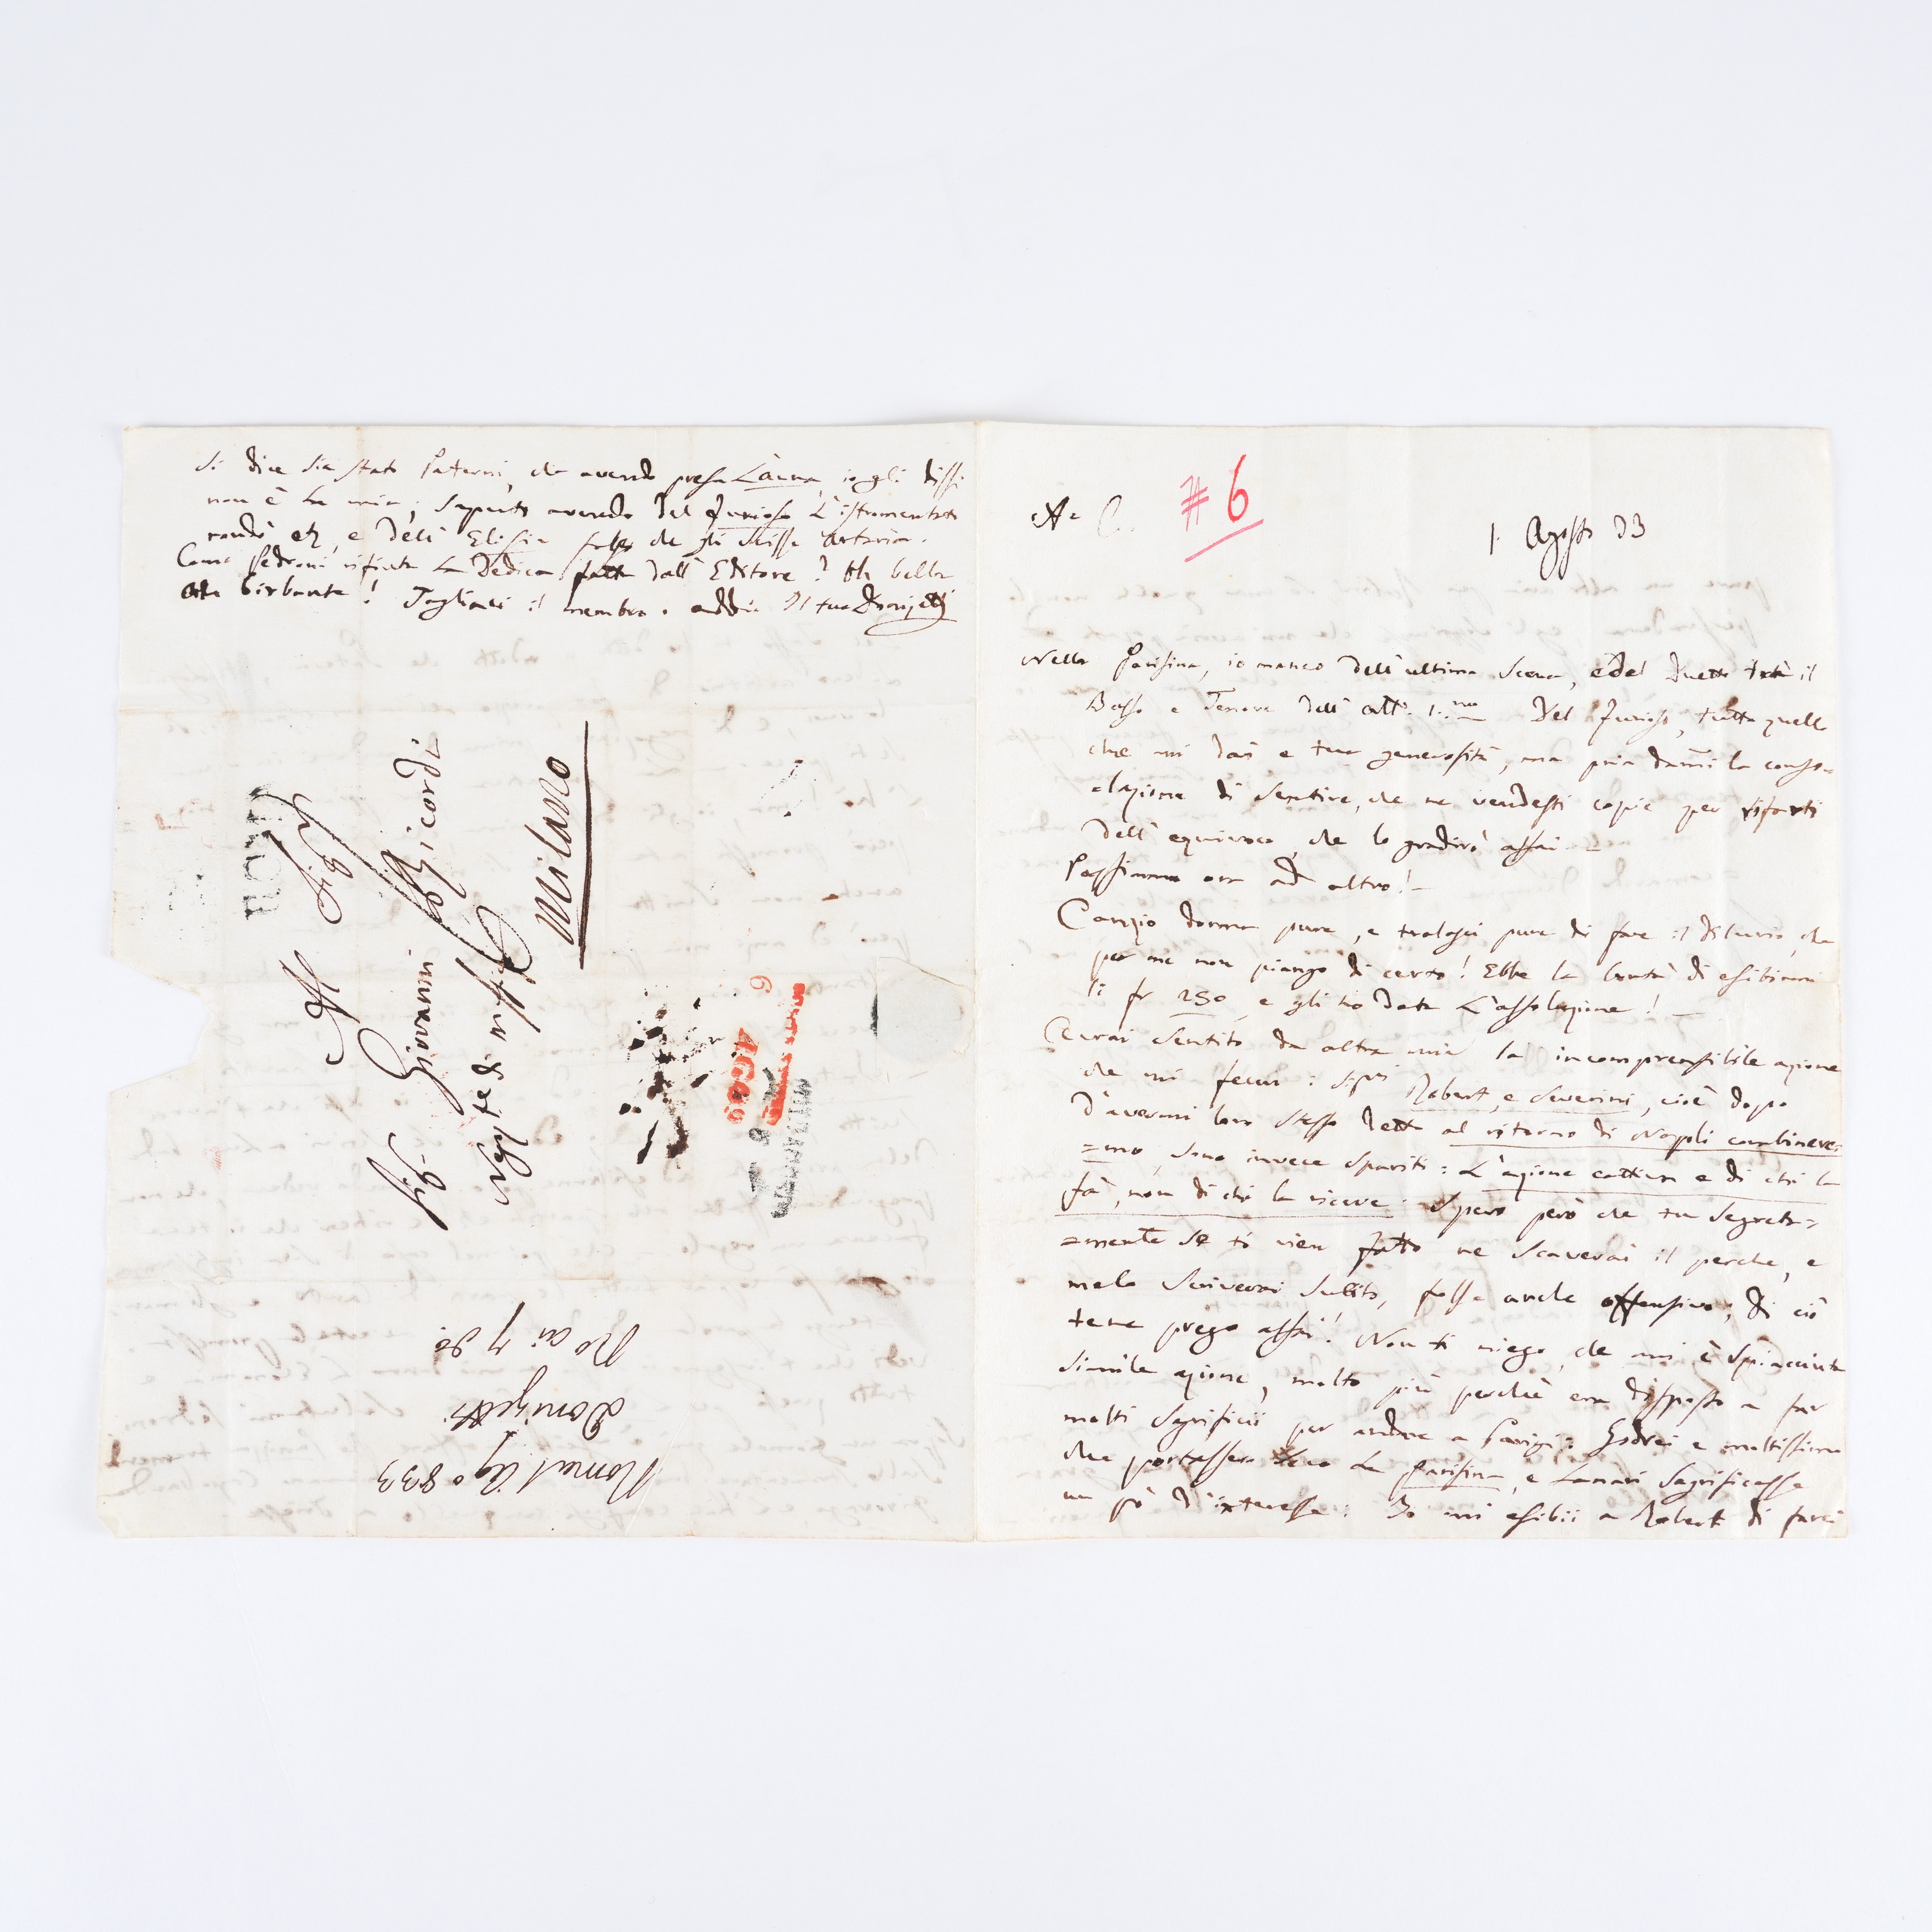 A. C.
# 6
1. Agosto 33
Nella Parisina, io manco dell'ultima Scena, e del Duetto trà il
Basso e Tenore dell'atto 1.mo Del Furioso, tutto quello
che mi dai e tua generosità, ma pria dammi la conso=
=lazione di sentire, che ne vendesti copie per rifarti
dell'equivoco, che lo gradirò assai –
Passiamo ora ad altro! –
dorma pure, e tralasci pure di fare il diluvio, che
per me non piango di certo! Ebbe la bontà di esibirmi
li fr 250, e gli ho data l'assoluzione! –
Avrai sentito da altra mia la incomprensibile azione
che mi fecer i Sigri Robert, e Severini, cioè dopo
d'avermi loro stessi detto al ritorno di Napoli combinere=
=mo, sono invece spariti: L'azione cattiva e di chi la
fà, non di chi la riceve: Spero però che tu segreta=
=mente se ti vien fatto ne scaverai il perche, e
melo scriverai subito, fosse anche offensivo; di ciò
tene prego assai! Non ti niego, che mi è spiaciuta
simile azione, molto più perchè era disposto a far
molti sagrificii per andare a Parigi: Godrei e moltissimo
che portassero seco La Parisina, e Lanari sagrificasse
un pò d'interesse: Io mi esibii a Robert di farci
Si dice sia stato Paterni, che avendo presa Laura, io gli dissi
non è la mia; saputo avendo del Furioso l'istrumentato
mandò etz, e dell'Elisir seppe che gli scrisse Artaria.
Come Pedroni rifiuta la Dedica fatta dall'Editore? Oh bella
Oh birbante! Tagliaci il membro. addio Il tuo Donizetti
Al Sig.r
Sig. Giovanni Ricordi
Negozte di
Milano
ROMA
Roma 1 Ago 833
Donizetti